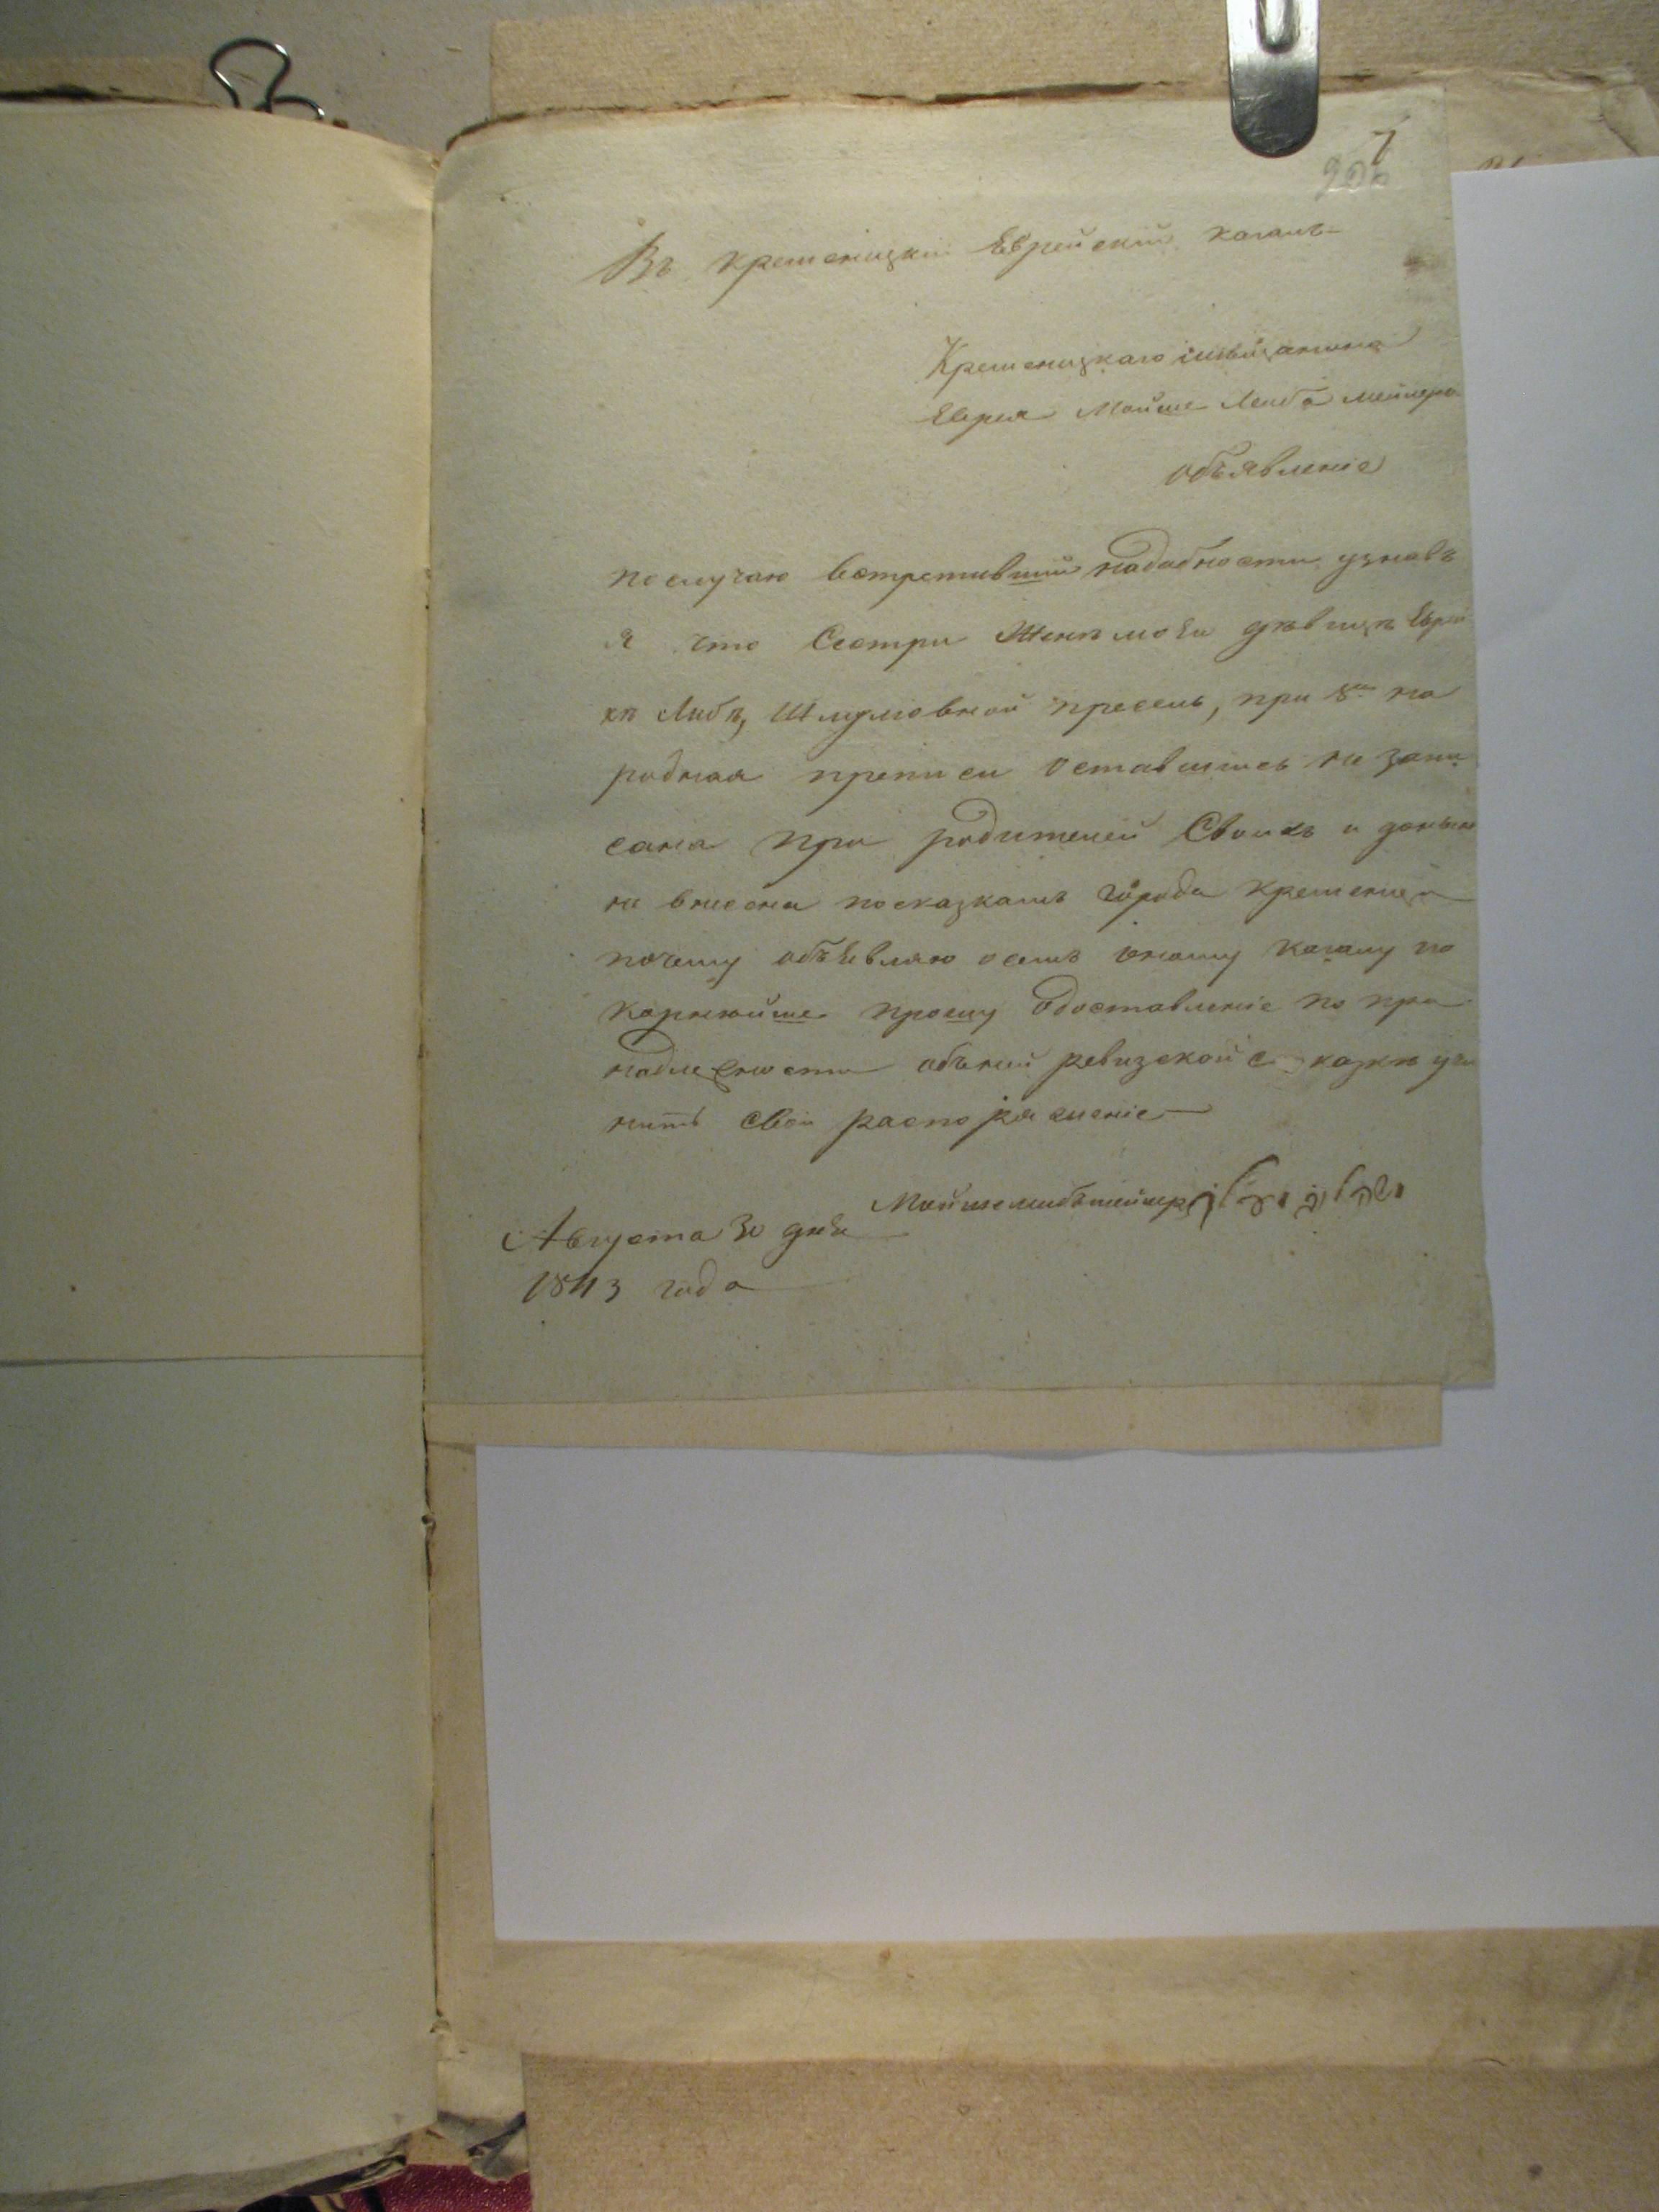 7
206
Въ кременецкій Еврейскій кагалъ
Кременецкаго мѣщанина
Еврея Мойше Лейба Мейлера
объявленіе
послучаю встретившій надобности узнавъ
я что Сестри Жени моеи дѣвици Еврей
ки Либи, Шмулювной пресель, при 8й на
родная преписи оставшись не запи
сана при родителей Своихъ и донын
не внесена посказкамъ города кременца
почему объевляю осемъ оному кагалу по
корнюйше прошу одоставленіе по при
надлежности объней ревизской сказки учи
нить свои распоряженіе
Мойшелейбъмейлер
Августа 30 дня
1843 года